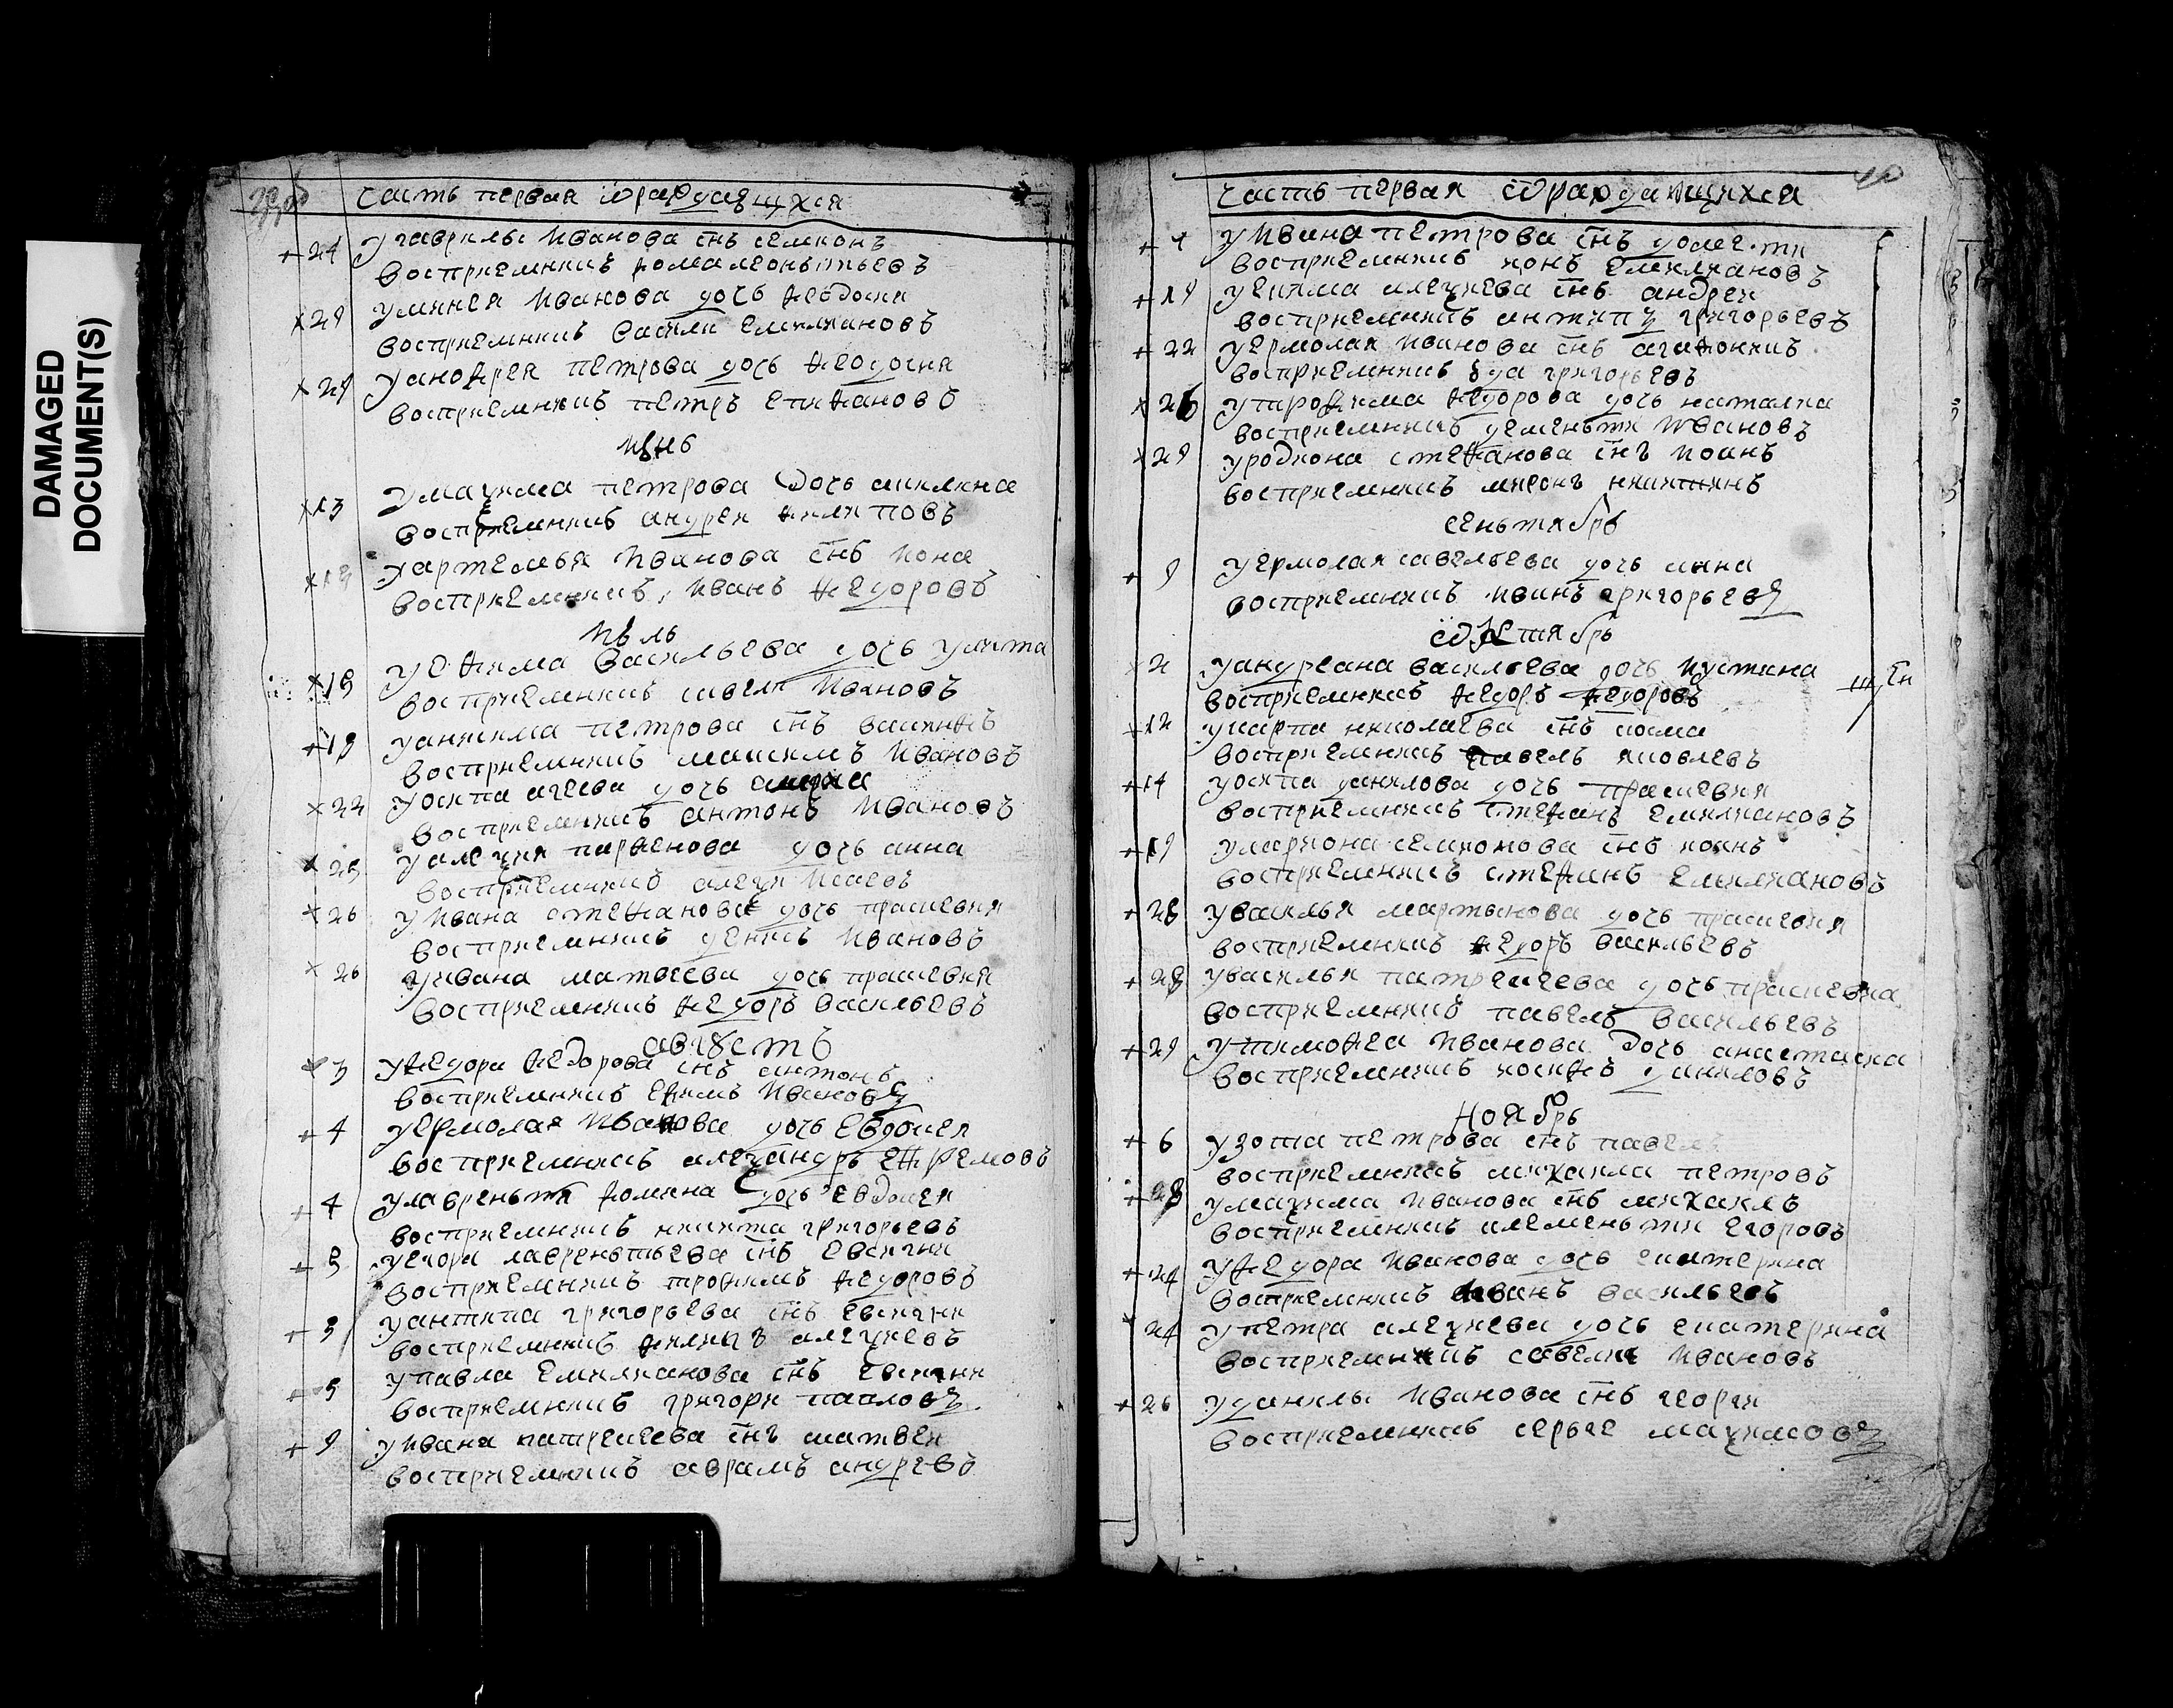 DAMAGED
DOCUMENT(S)
часть первая ѿраждающихся
+ 24 у гаврилы Иванова снъ семионъ
восприемникъ фома леонътьевъ
× 29 у минея Иванова дочь феодосия
восприемникъ василеи емилиановъ
× 29 у андрея петрова дочь феодосия
восприемникъ петръ епифановъ
июнь
× 13 у маѯима петрова дочь акилина
восприемникъ андреи филиповъ
× у артемья Иванова снъ Иона
восприемникъ Иванъ федоровъ
Июль
× 19 у ефима васильева дочь улита
восприемникъ савели Ивановъ
+ 19 у анисима петрова снъ
восприемникъ Ивановъ
× 22 у осипа агеева дочь
восприемникъ антонъ Ивановъ
× 25 у алеѯия парфенова дочь анна
восприемникъ алеѯи Исаевъ
× 26 у Ивана стефанова дочь праскевия
восприемникъ денисъ Ивановъ
× 26 у ивана матвеева дочь праскевия
восприемникъ федоръ васильевъ
августъ
× 3 у федора федорова снъ антонъ
восприемникъ ефимъ Ивановъ
+ 4 у ермолая Иванова дочь евдокея
восприемникъ алеѯандръ ефремовъ
+ 4 у лавренътя фомина дочь евдокея
восприемникъ никита григорьевъ
+ 5 у егора лавренътьева снъ евсигни
восприемникъ трофимъ федоровъ
+ 5 у антипа григорьева снъ евсигни
восприемникъ филипъ алеѯиевъ
+ 5 у павла емилианова снъ евсигни
восприемникъ григори павловъ
+ 9 у Ивана патрекеева снъ матвеи
восприемникъ аврамъ андревъ
40
часть первая ѿраждающихся
+ у Ивана петрова снъ
восприемникъ ионъ емилиановъ
+ 19 у екима алеѯиева снъ андреи
восприемникъ антипъ григорьевъ
+ 22 у ермолая Иванова снъ агафоникъ
восприемникъ григорьевъ
× 26 у трофима федорова дочь наталиа
восприемникъ дементи Ивановъ
× 29 у родиона стефанова снъ Иоанъ
восприемникъ миронъ никитинъ
сеньтябрь
+ 9 у ермолая савельева дочь анна
восприемникъ иванъ григорьевъ
ѿктябрь
2 у андреана васильева дочь Иустина
восприемникъ федоръ федоровъ
+ 12 у карпа николаева снъ козма
восприемникъ павелъ яковлевъ
+ 14 у осипа данилова дочь праскевия
восприемникъ стефанъ емилиановъ
+ 19 у лариона семионова снъ иоанъ
восприемникъ стефанъ емилиановъ
+ 28 у василья мартынова дочь праскевия
восприемникъ федоръ васильевъ
+ 28 у василья патрекеева дочь праскевиа
восприемникъ павелъ васильевъ
+ 29 у тимофея Иванова дочь анастасиа
восприемникъ иосифъ даниловъ
ноябрь
+ 6 у зота петрова снъ павелъ
восприемникъ михаила петровъ
+ 8 у маѯима Иванова снъ михаилъ
восприемникъ клеменьти егоровъ
+ 24 у федора Иванова дочь екатерина
восприемникъ Иванъ васильевъ
24 у петра алеѯиева дочь екатерина
восприемникъ савелие Ивановъ
+ 26 у данилы Иванова снъ георги
восприемникъ сергие маѯимовъ